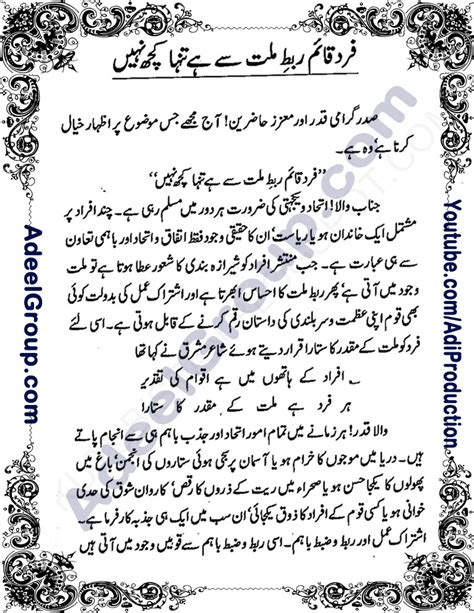 فرد قائم ربط ملت سے ہے تنہا کچھ نہیں
صدر گرامی قدر اور معزز حاضرین! آج مجھے جس موضوع پر اظہار خیال
کرنا ہے وہ ہے۔
”فرد قائم ربط ملت سے ہے تنہا کچھ نہیں“
جناب والا! اتحاد و یکجہتی کی ضرورت ہر دور میں مسلم رہی ہے۔ چند افراد پر
مشتمل ایک خاندان ہو یا ریاست' ان کا حقیقی وجود فقط اتفاق و اتحاد اور باہمی تعاون
سے ہی عبارت ہے۔ جب منتشر افراد کو شیرازہ بندی کا شعور عطا ہوتا ہے تو ملت
وجود میں آتی ہے' پھر ربط ملت کا احساس ابھرتا ہے اور اشتراک عمل کی بدولت کوئی
بھی قوم اپنی عظمت و سربلندی کی داستان رقم کرنے کے قابل ہوتی ہے۔ اسی لئے
فرد کو ملت کے مقدر کا ستارا قرار دیتے ہوئے شاعر مشرق نے کہا تھا
افراد کے ہاتھوں میں ہے اقوام کی تقدیر
ہر فرد ہے ملت کے مقدر کا ستارا
والا قدر! ہر زمانے میں تمام امور اتحاد اور جذب باہم ہی سے انجام پاتے
ہیں۔ دریا میں موجوں کا خرام ہو یا آسمان پر سجی ہوئی ستاروں کی انجمن باغ میں
پھولوں کا یکجا حسن ہو یا صحرا میں ریت کے ذروں کا رقص' کاروان شوق کی حدی
خوانی ہو یا کسی قوم کے افراد کا ذوق یکجائی' ان سب میں ایک ہی جذبہ کارفرما ہے۔
اشتراک عمل اور ربط و ضبط باہم۔ اسی ربط و ضبط باہم سے قومیں وجود میں آتی ہیں
AdeelGroup.com
Youtube.com/AdiProduction
AdeelGroup.com